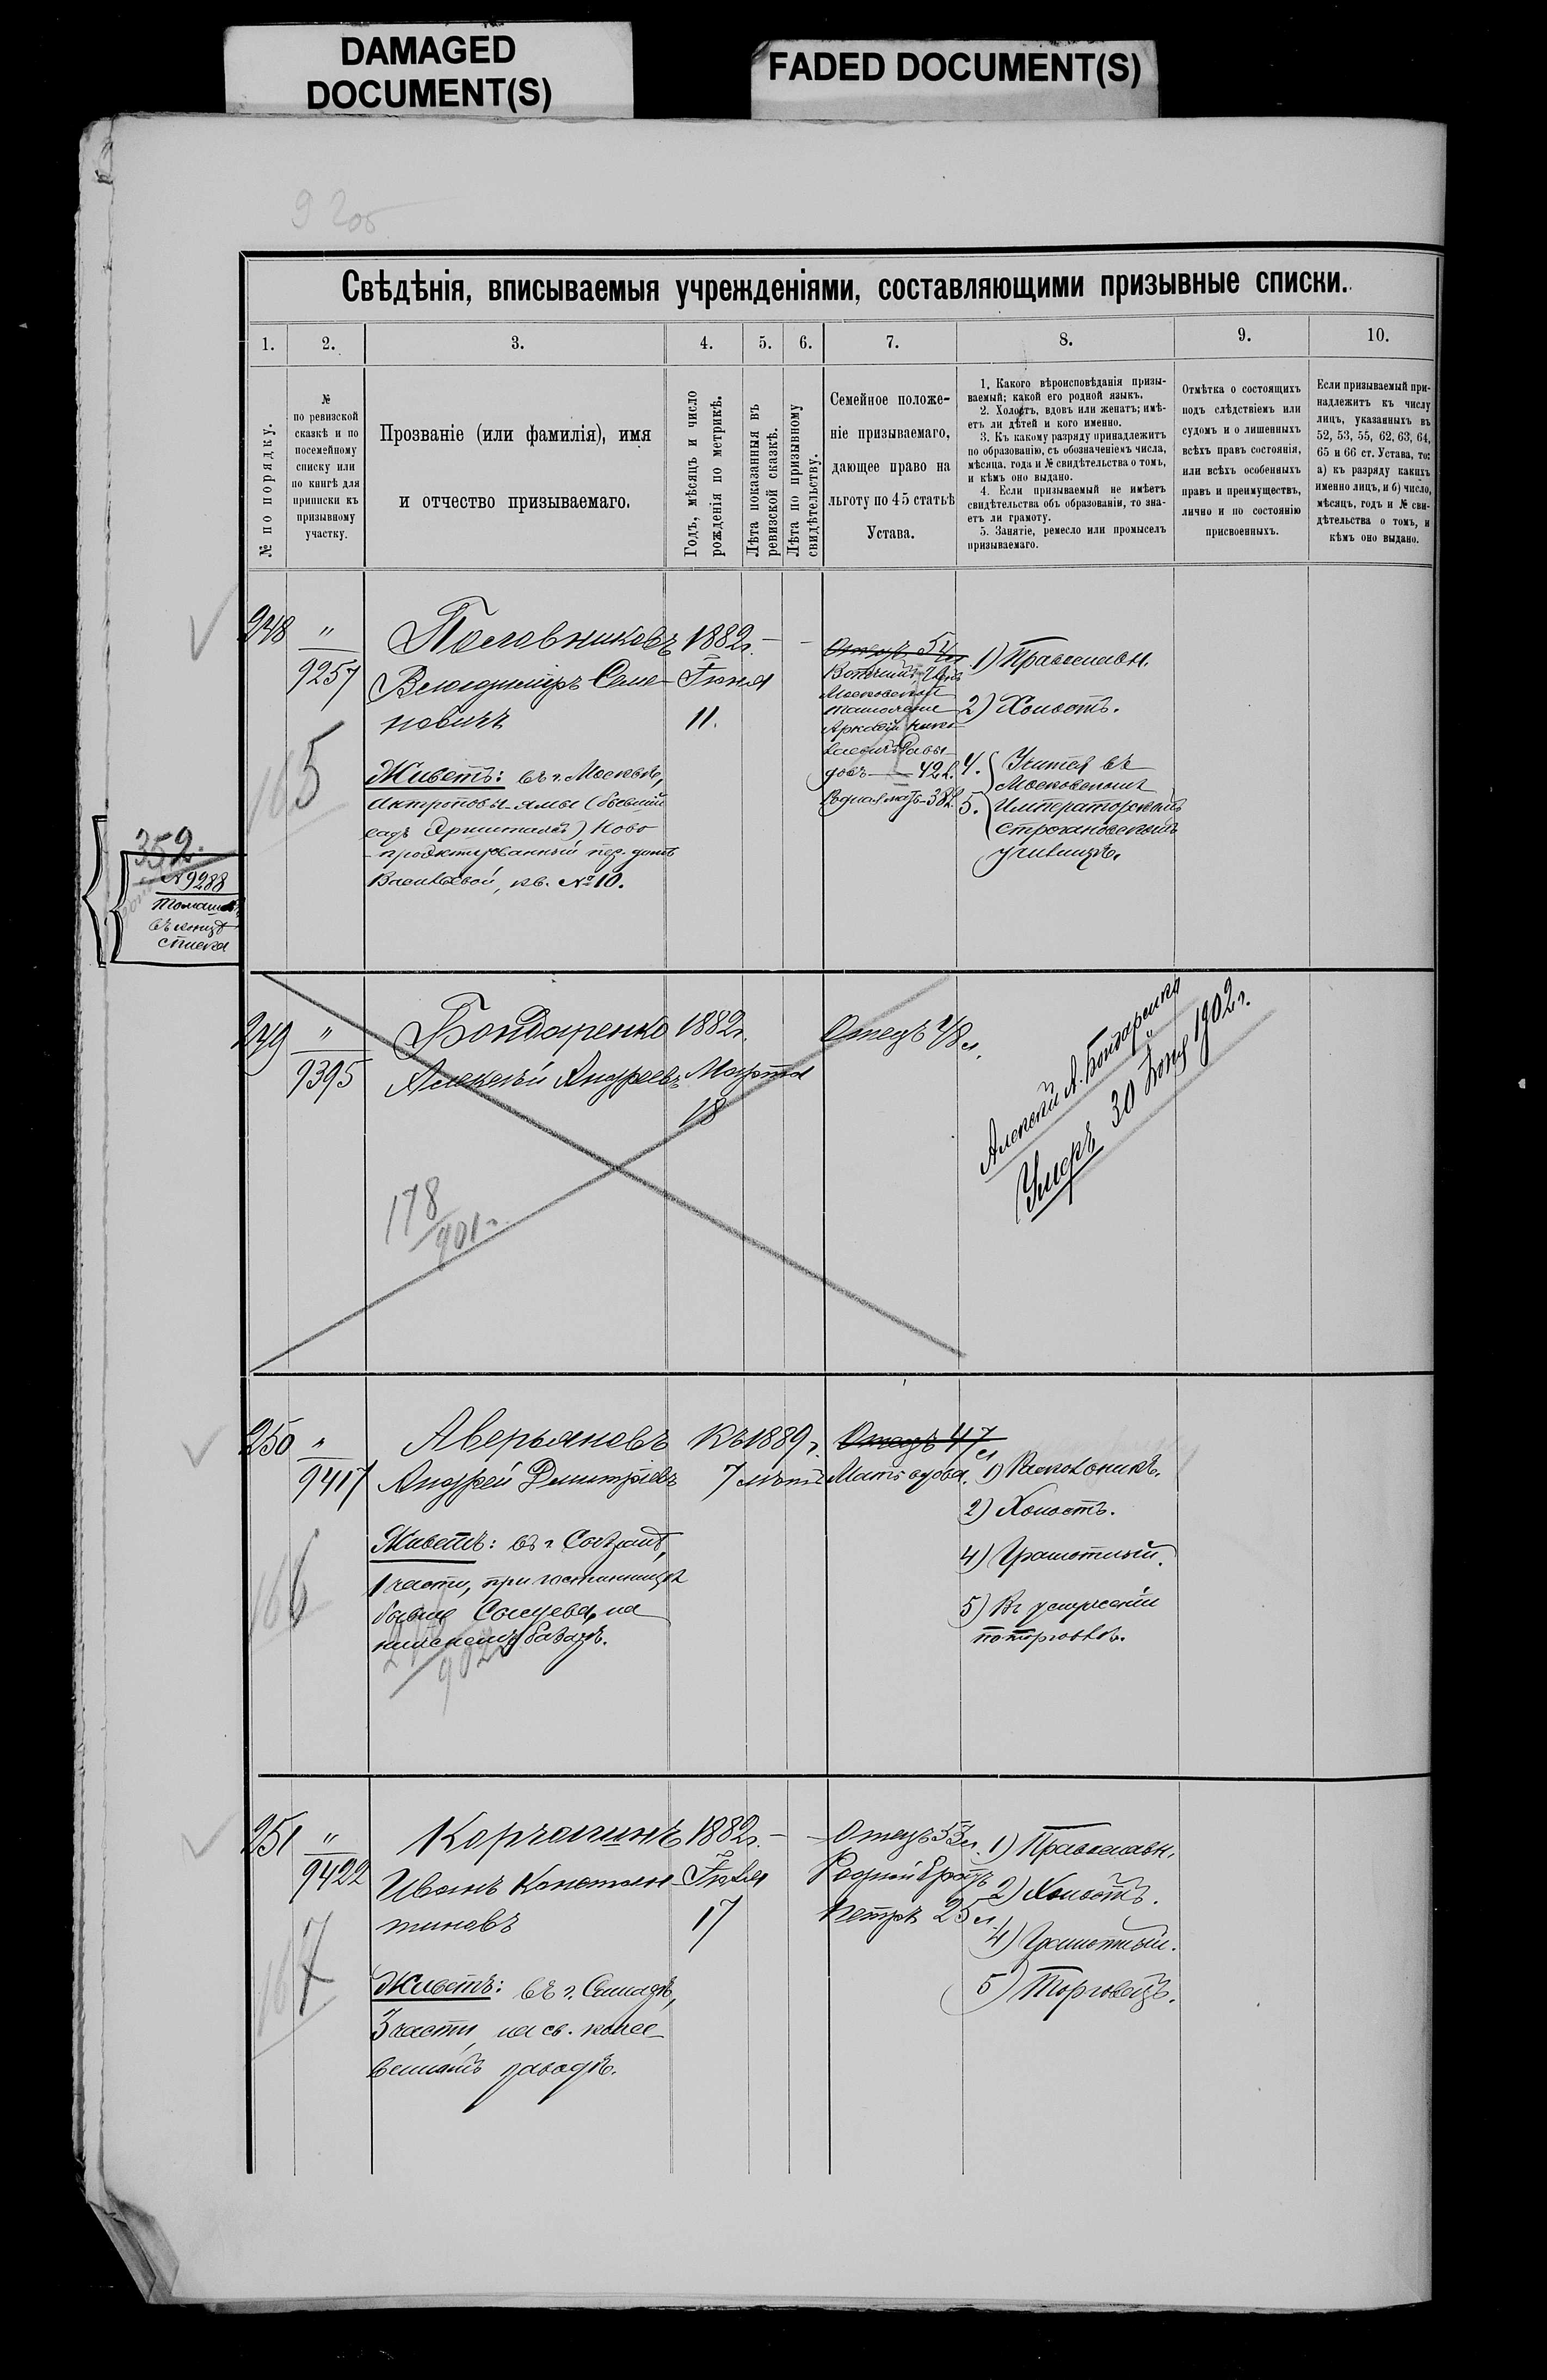 DAMAGED
DOCUMENT(S)
FADED DOCUMENT(S)
9 2об
Свѣдѣнія, вписываемыя учрежденіями, составляющими призывные списки.
1.
2.
3.
4.
5.
6.
7.
8.
9.
10.
№ по порядку.
№
по ревизской
сказкѣ и по
посемейному
списку или
по книгѣ для
приписки къ
призывному
участку.
Прозваніе (или фамилія), имя
и отчество призываемаго.
Годъ, мѣсяцъ и число
рожденія по метрикѣ.
Лѣта показанныя въ
ревизской сказкѣ.
Лѣта по призывному
свидѣтельству.
Семейное положе-
ніе призываемаго,
дающее право на
льготу по 45 статьѣ
Устава.
1. Какого вѣроисповѣданія призы-
ваемый; какой его родной языкъ.
2. Холостъ, вдовъ или женатъ; имѣ-
етъ ли дѣтей и кого именно.
3. Къ какому разряду принадлежитъ
по образованію, съ обозначеніемъ числа,
мѣсяца, года и № свидѣтельства о томъ,
и кѣмъ оно выдано.
4. Если призываемый не имѣетъ
свидѣтельства объ образованіи, то зна-
етъ ли грамоту.
5. Занятіе, ремесло или промыселъ
призываемаго.
Отмѣтка о состоящихъ
подъ слѣдствіемъ или
судомъ и о лишенныхъ
всѣхъ правъ состоянія,
или всѣхъ особенныхъ
правъ и преимуществъ,
лично и по состоянію
присвоенныхъ.
Если призываемый при-
надлежитъ къ числу
лицъ, указанныхъ въ
52, 53, 55, 62, 63, 64,
65 и 66 ст. Устава, то:
а) къ разряду какихъ
именно лицъ, и б) число,
мѣсяцъ, годъ и № сви-
дѣтельства о томъ, и
кѣмъ оно выдано.
248
"
9257
165
Пословниковъ
Владиміръ Семе-
новичъ
Живетъ: въ г. Москвѣ,
ямы (бывшій
садъ Эрмитажъ) Ново-
проектированный пер. домъ
Васильевой, кв. № 10.
1882г.
Іюня
11.
Отецъ 54л
Вотчимъ
Московскій
Аркадій Нико-
лаевичъ
42 л.
Родная мать 38 л.
1) Православн.
2) Холостъ.
4. Учится въ
Московскомъ
5. Императорскомъ
Строгановскомъ
училищѣ.
352.
№ 9288
въ концѣ
списка
249
"
9395
Бондаренко
Алексѣй Андреевъ
178
901г.
1882г.
Марта
18
Отецъ 48 л.
Алексѣй А. Бондаренко
Умеръ 30 1902 г.
250
"
9417
166
Аверьяновъ
Андрей Димитріевъ
Живетъ: въ г. Сызрани,
1 части, при гостинницѣ
бывше на
базарѣ.
902
Къ 1889 г.
7 лѣтъ
Отецъ 47 л
Мать вдова.
1) Раскольникъ.
2) Холостъ.
4) Грамотный.
5) Въ услуженіи
по торговлѣ.
251
"
9422
167
Корчагинъ
Иванъ Констан-
тиновъ
Живетъ: въ г. Самарѣ,
3 части, на
заводѣ.
1882г.
Іюля
17
Отецъ 53 л.
Родной братъ
Петръ 25 л.
1) Православн.
2) Холостъ.
4) Грамотный.
5) Торговецъ.